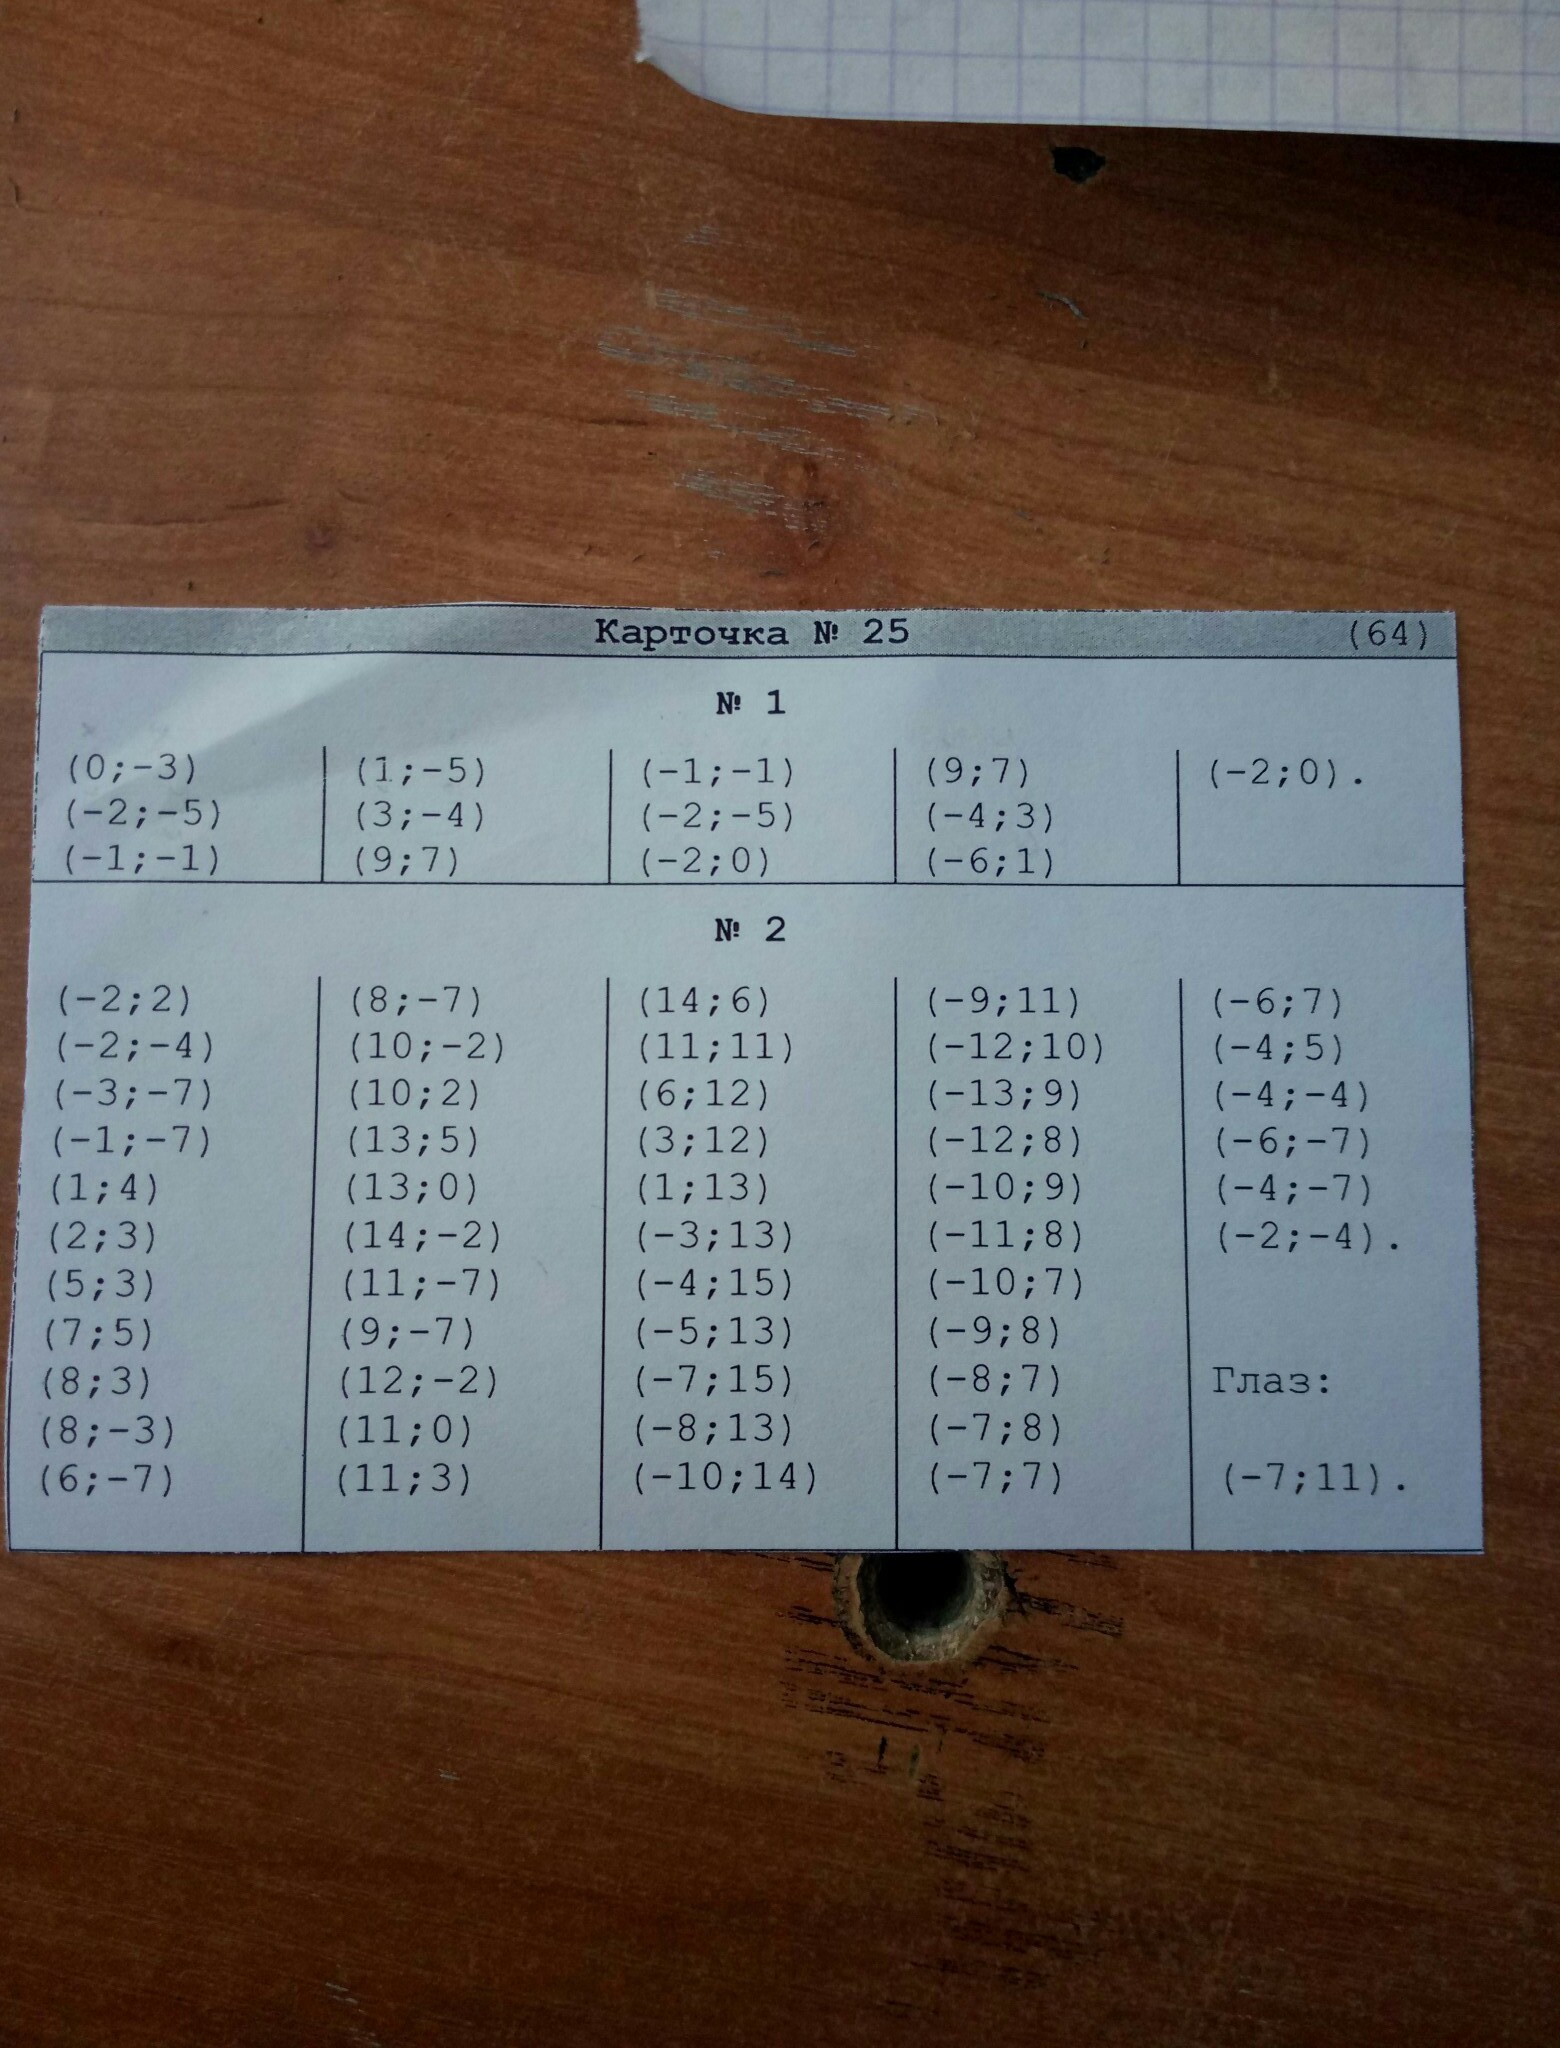 Карточка № 25 (64)
№ 1
(0;-3) (1;-5) (-1;-1) (9;7) (-2;0).
(-2;-5) (3;-4) (-2;-5) (-4;3)
(-1;-1) (9;7) (-2;0) (-6;1)
№ 2
(-2;2) (8;-7) (14;6) (-9;11) (-6;7)
(-2;-4) (10;-2) (11;11) (-12;10) (-4;5)
(-3;-7) (10;2) (6;12) (-13;9) (-4;-4)
(-1;-7) (13;5) (3;12) (-12;8) (-6;-7)
(1;4) (13;0) (1;13) (-10;9) (-4;-7)
(2;3) (14;-2) (-3;13) (-11;8) (-2;-4).
(5;3) (11;-7) (-4;15) (-10;7)
(7;5) (9;-7) (-5;13) (-9;8)
(8;3) (12;-2) (-7;15) (-8;7) Глаз:
(8;-3) (11;0) (-8;13) (-7;8)
(6;-7) (11;3) (-10;14) (-7;7) (-7;11).